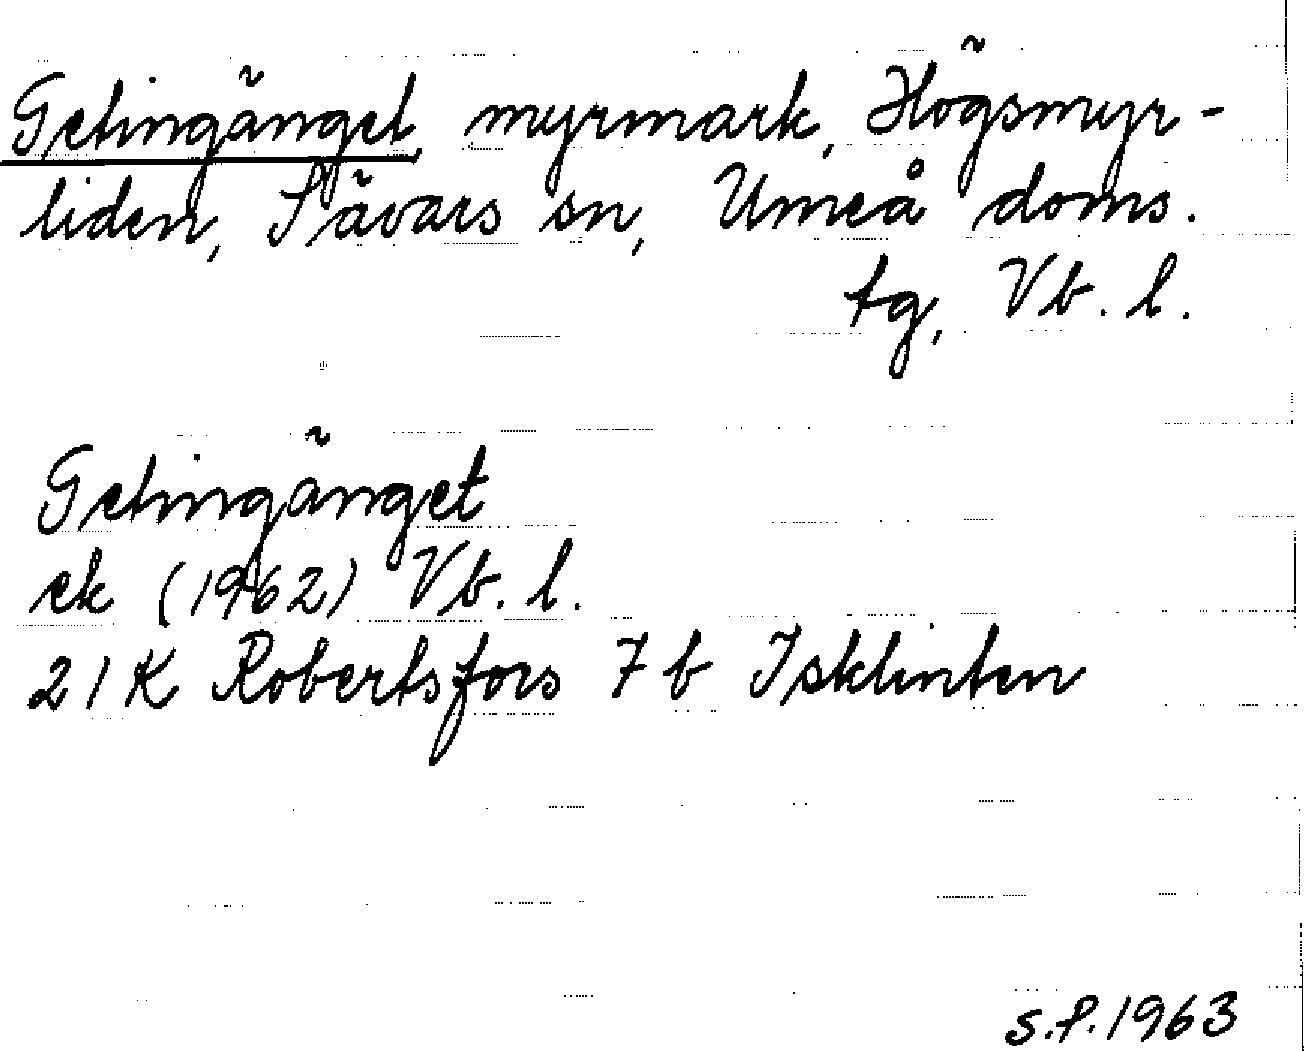 Getingänget, myrmark, Högsmyr-
liden, Sävars sn, Umeå doms.
tg, Vb. l.
Getingänget
ek (1962) Vb. l.
21 K Robertsfors 7 b Isklinten
S.P. 1963